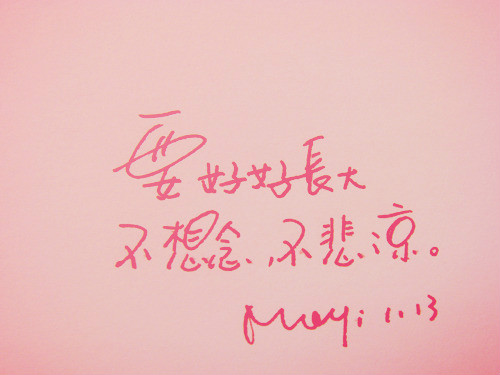 要好好長大
不想念，不悲涼。
Mayi 11.13